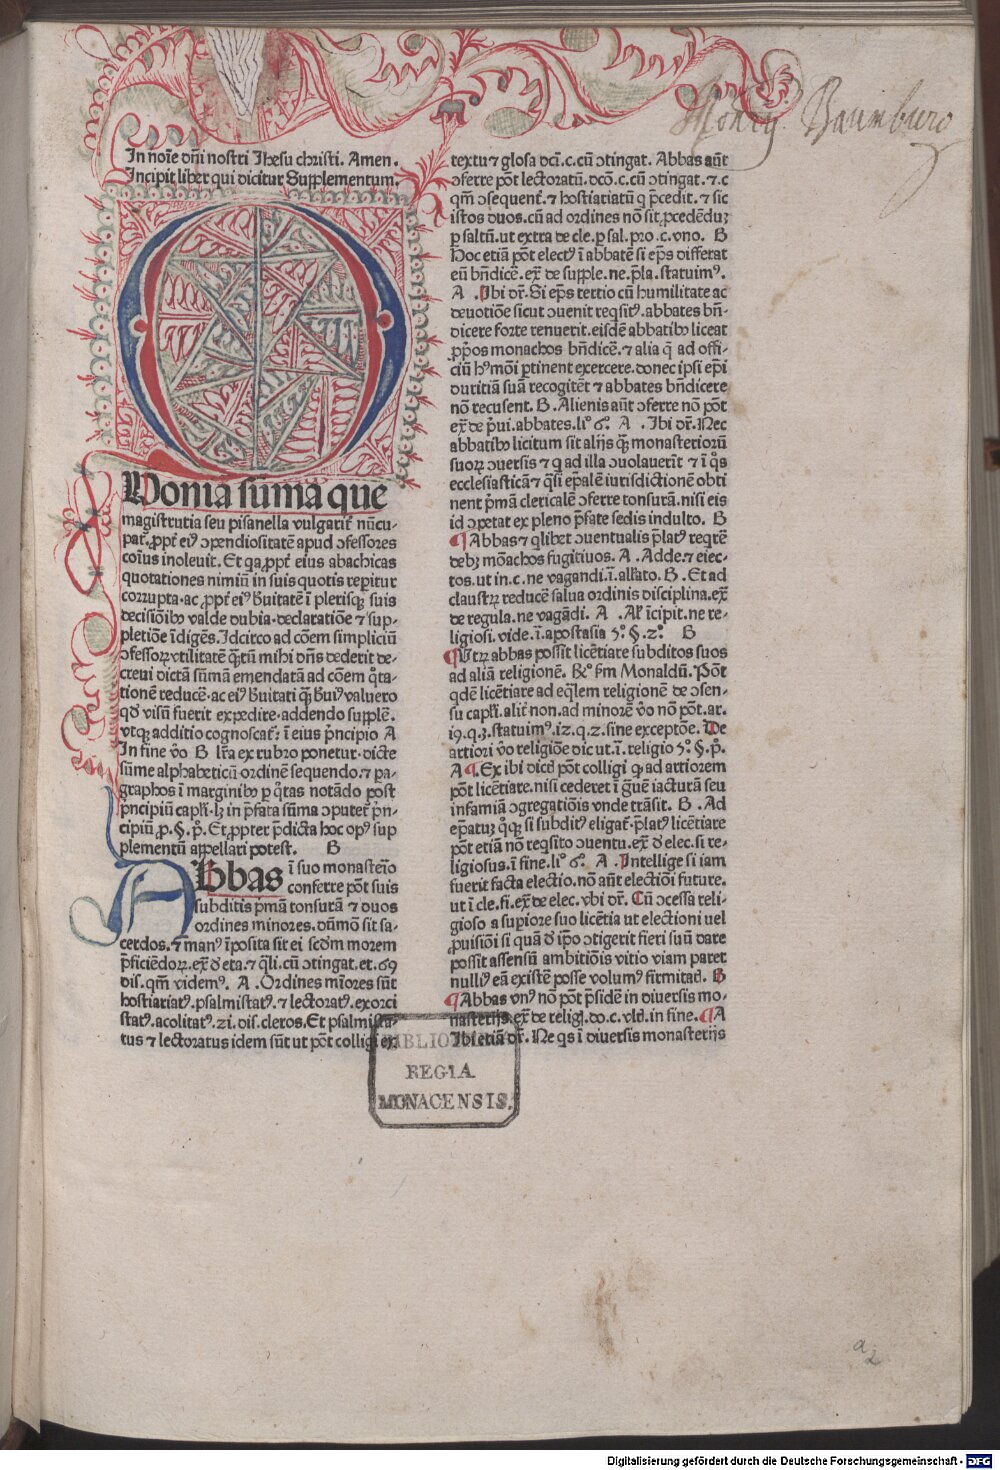 In noīe dn̄i nostri Jhesu christi. Amen.
Incipit liber qui dicitur Supplementum.
QVoniā sūma que
magistrutia seu pisanella vulgarit̄ nūcu-
pat̄. ꝓpt̄ eiꝰ ꝯpendiositatē apud ꝯfessores
cōīus inoleuit. Et qꝛ ꝓpt̄ eius abachicas
quotationes nimiū in suis quotis reꝑitur
corrupta. ac ꝓpt̄ eiꝰ b̄uitatē ī plerisqꝫ suis
decisiōibꝰ valde dubia. declaratiōe ⁊ sup-
pletiōe īdigēs. Idcirco ad cōem simpliciū
ꝯfessoꝝ vtilitatē qꝫtū mihi dn̄s dederit de-
creui dictā sūmā emendatā ad cōem q̊ta-
tionē reducē. ac eiꝰ b̄uitati qꝫ b̄uiꝰ valuero
qd̓ visū fuerit expedire. addendo supplē.
vtqꝫ additio cognoscat̄. ī eius p̄ncipio A
In fine v̄o B lr̄a ex rubro ponetur. dicte
sūme alphabeticū ordinē sequendo. ⁊ pa-
graphos ī marginibꝰ ꝑ q̄tas notādo post
pncipiū capl̄i. lꝫ in p̄fata sūma ꝯputet̄ p̄n-
cipiū ꝓ. §. p̄. Et ꝓpter p̄dicta hoc opꝰ sup
plementū appellari potest. B
ABbas ī suo monasterio
conferre pōt suis
subditis pmā tonsurā ⁊ duos
ordines minores. dūmō sit sa-
cerdos. ⁊ manꝰ īposita sit ei scd̓m morem
p̄ficiēdoꝝ. ex̄ d̓ eta. ⁊ q̄li. cū ꝯtingat. et. 69
dis. qm̄ videmꝰ. A . Ordines mīores sūt
hostiariatꝰ. psalmistatꝰ. ⁊ lectoratꝰ. exorci
statꝰ. acolitatꝰ. zi. dis. cleros. Et psalmista-
tus ⁊ lectoratus idem sūt ut pōt colligi ex
textu ⁊ glosa dc̄i. c. cū ꝯtingat. Abbas aūt
ꝯferre pōt lectoratū. dc̄o. c. cū ꝯtingat. ⁊ . c
qm̄ ꝯsequent̄. ⁊ hostiariatū q p̄cedit. ⁊ sic
istos duos. cū ad ordines nō sit ꝓcedēduꝫ
ꝑ saltū. ut extra de cle. ꝑ sal. pro. c. vno. B
Hoc etiā pōt electꝰ ī abbatē si ep̄s differat
eū bn̄dicē. ex̄ de supple. ne. p̄la. statuimꝰ.
A . Ibi dr̄. Si ep̄s tertio cū humilitate ac
deuotiōe sicut ꝯuenit req̄sitꝰ. abbates bn̄-
dicere forte renuerit. eisdē abbatibꝰ liceat
ꝓpōs monachos bn̄dicē. ⁊ alia q̄ ad offi-
ciū hꝰmōi ꝑtinent exercere. donec ipsi ep̄i
duritiā suā recogitēt ⁊ abbates bn̄dicere
nō recusent. B . Alienis aūt ꝯferre nō pōt
ex̄ de p̄ui. abbates. li° 6°. A . Ibi dr̄. Nec
abbatibꝰ licitum sit alijs qꝫ monasterioꝝ
suoꝝ ꝯuersis ⁊ q ad illa ꝯuolauerīt ⁊ ī q̊s
ecclesiasticā ⁊ q̄si ep̄alē iurisdictionē obti
nent p̄mā clericalē ꝯferre tonsurā. nisi eis
id ꝯpetat ex pleno p̄fate sedis indulto. B
¶ Abbas ⁊ qlibet ꝯuentualis p̄latꝰ reqrē
debꝫ mōachos fugitiuos. A . Adde. ⁊ eiec-
tos. ut in. c. ne vagandi. ī. all̄ato. B . Et ad
claustꝝ reducē salua ordinis disciplina. ex̄
de regula. ne vagādi. A . Al̄ īcipit. ne re-
ligiosi. vide. ī. apostasia 5°. §. 2°. B
¶ Vtꝝ abbas possit licētiare subditos suos
ad aliā religionē. Rº fm Monaldū. Pōt
qdē licētiare ad eq̄lem religionē de ꝯsen-
su capl̄i. alit̄ non. ad minorē v̄o nō pōt. ar.
i9. q. 3. statuimꝰ. iz. q. z. sine exceptōe. De
artiori v̄o religiōe dic ut. ī. religio 5°. §. p̄.
A ¶ . Ex ibi dicd̓ pōt colligi qꝫ ad artiorem
pōt licētiare. nisi cederet ī g̊uē iacturā seu
infamiā ꝯgregatiōis vnde trāsit. B . Ad
ep̄atuꝫ q̊qꝫ si subditꝰ eligat̄. p̄latꝰ licētiare
pōt etiā nō reqsito ꝯuentu. ex̄ d̓ elec. si re-
ligiosus. ī fine. li° 6°. A . Intellige si iam
fuerit facta electio. nō aūt electiōi future.
ut ī cle. fi. ex̄ de elec. vbi dr̄. Cū ꝯcessa reli-
gioso a supiore suo licētia ut electioni uel
ꝓuisiōi si quā d̓ ip̄o ꝯtigerit fieri suū dare
possit assensū ambitiōis vitio viam paret
nulliꝰ eā existē posse volumꝰ firmitad̓. B
¶ Abbas vnꝰ nō pōt p̄sidē in diuersis mo-
nasterijs. ex̄ de religi. do. c. vlt̓. in fine. ¶ A
Ibi etiā dr̄. Ne qs ī diuersis monasterijs
BIBLIOTHECA
REGIA
MONACENSIS.
a2
Digitalisierung gefördert durch die Deutsche Forschungsgemeinschaft - DFG